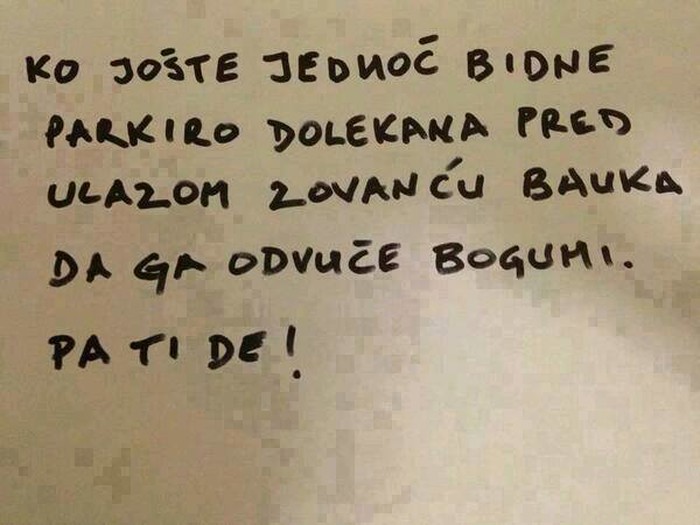 KO JOŠTE JEDNOČ BIDNE
PARKIRO DOLEKANA PRED
ULAZOM ZOVANĆU BAUKA
DA GA ODVUČE BOGUMI.
PA TI DE!